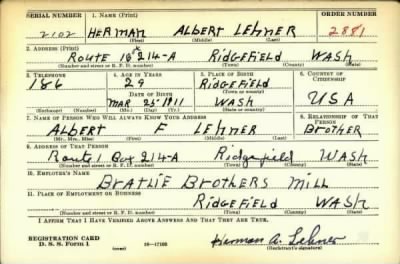 SERIAL NUMBER 1. NAME (Print) ORDER NUMBER
2102 HERMAN ALBERT LEHNER 2881
(First) (Middle) (Last)
2. ADDRESS (Print)
ROUTE 1 214-A RIDGEFIELD WASH
(Number and street or R. F. D. number) (Town) (County) (State)
3. TELEPHONE 4. AGE IN YEARS 5. PLACE OF BIRTH 6. COUNTRY OF CITIZENSHIP
186 29 RIDGEFIELD
DATE OF BIRTH (Town or county)
MAR 25 1911 WASH USA
(Exchange) (Number) (Mo.) (Day) (Yr.) (State or country)
7. NAME OF PERSON WHO WILL ALWAYS KNOW YOUR ADDRESS 8. RELATIONSHIP OF THAT PERSON
ALBERT F LEHNER BROTHER
(Mr., Mrs., Miss) (First) (Middle) (Last)
9. ADDRESS OF THAT PERSON
Route 1 Box 214-A Ridgefield WASH
(Number and street or R. F. D. number) (Town) (County) (State)
10. EMPLOYER'S NAME
BRATLIE BROTHERS MILL
11. PLACE OF EMPLOYMENT OR BUSINESS
RIDGEFIELD WASH
(Number and street or R. F. D. number) (Town) (County) (State)
I AFFIRM THAT I HAVE VERIFIED ABOVE ANSWERS AND THAT THEY ARE TRUE.
REGISTRATION CARD
D. S. S. Form 1 (over) 16—17105 Herman A. Lehner
(Registrant's signature)